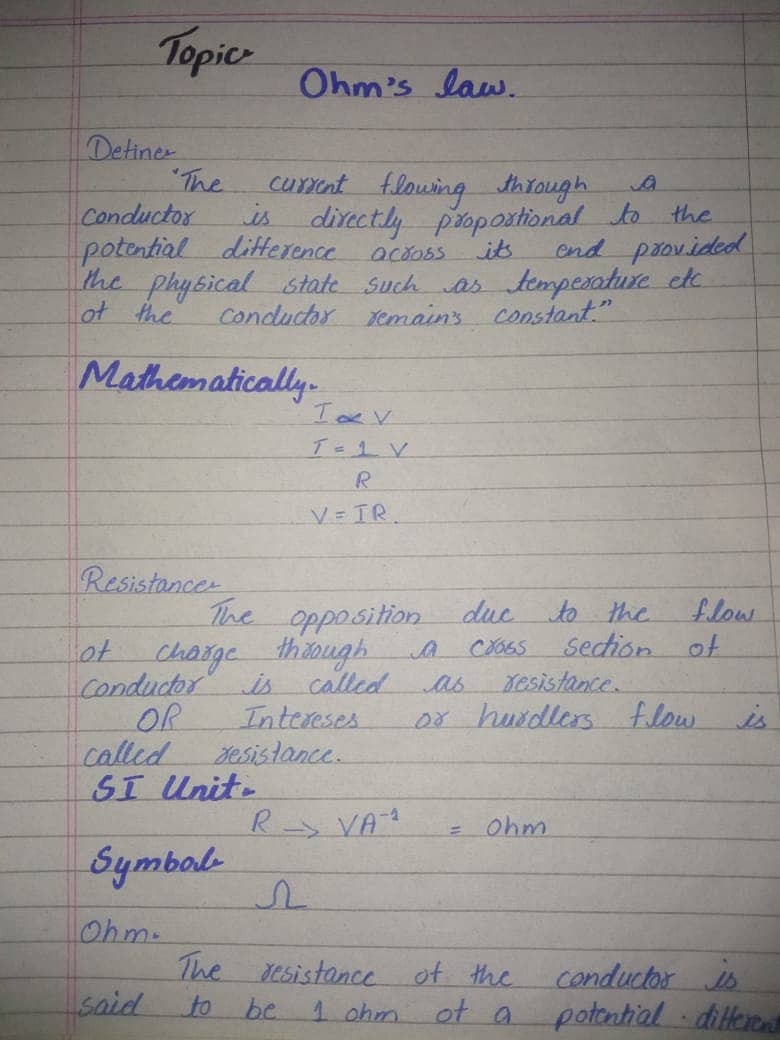 Topic
Ohm's law.
Define
"The current flowing through a
conductor is directly proportional to the
potential difference across its end provided
the physical state such as temperature etc
of the conductor remain's constant."
Mathematically.
I ∝ V
I = 1 V
R
V = IR.
Resistance
The opposition due to the flow
of charge through a cross section of
conductor is called as resistance.
OR Intereses or hurdlers flow is
called resistance.
SI Unit
R → VA⁻¹ = Ohm
Symbol
Ω
Ohm.
The resistance of the conductor is
said to be 1 ohm of a potential different